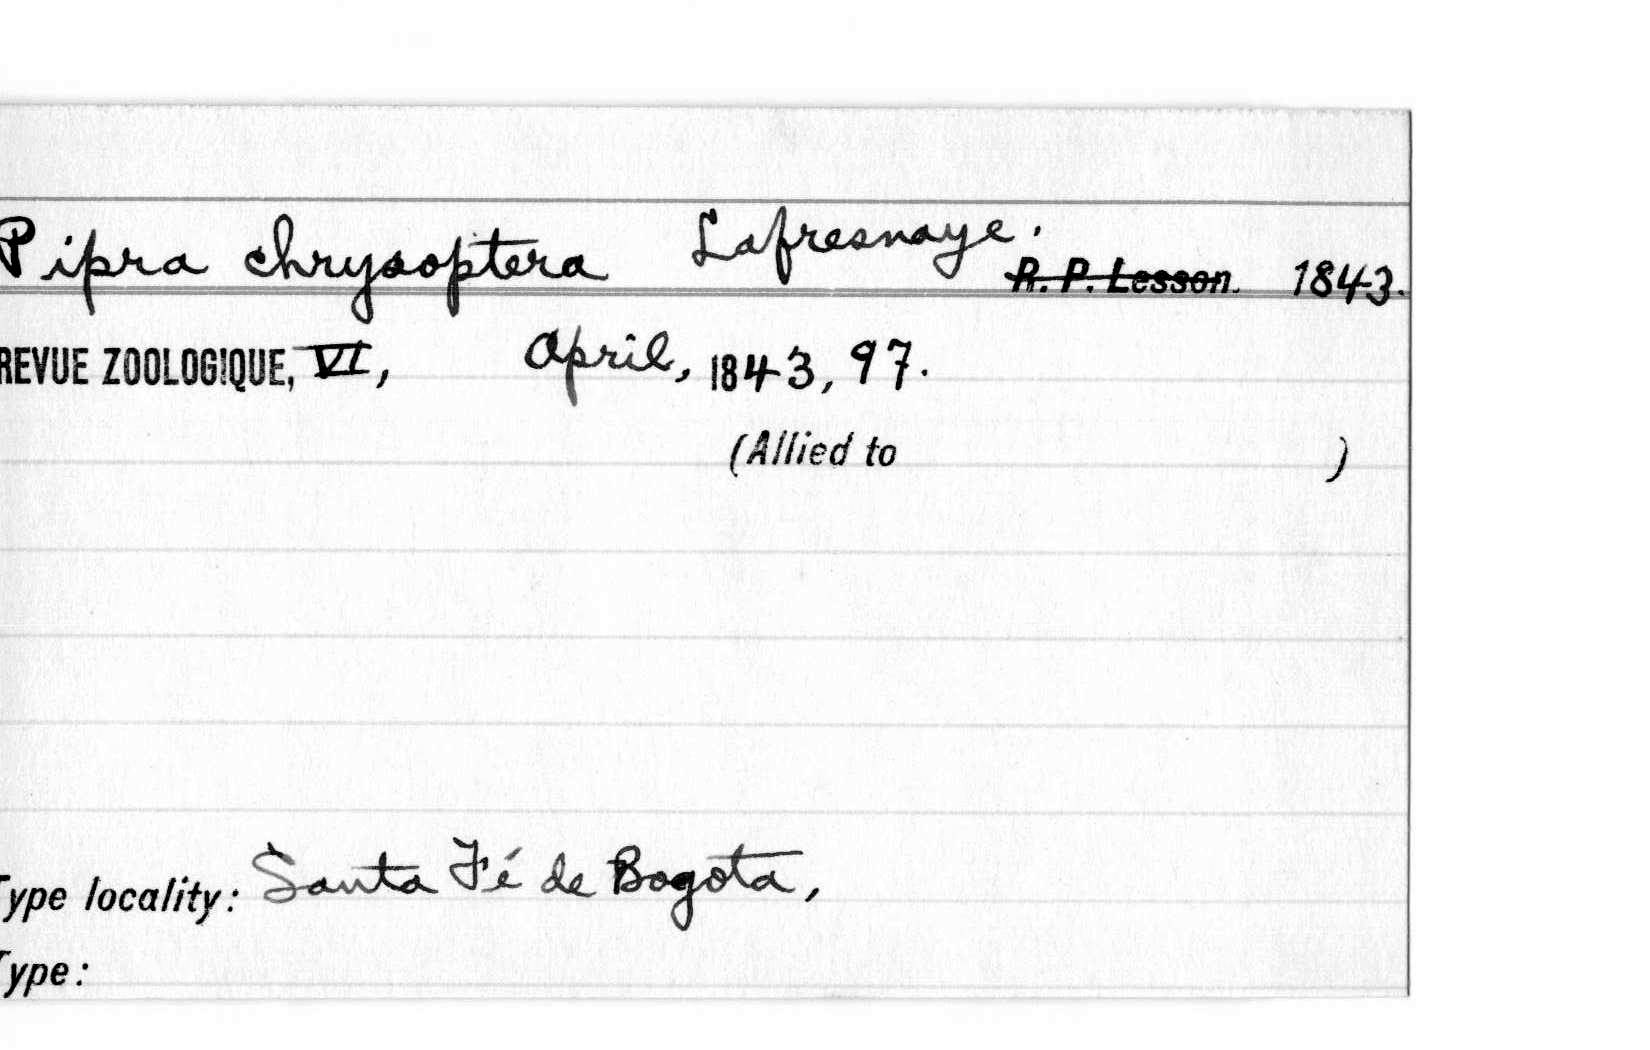 Pipra chrysoptera Lafresnaye.
R. P. Lesson. 1843.
REVUE ZOOLOGIQUE, VI, April, 1843, 97.
(Allied to )
Type locality: Santa Fé de Bogota,
Type: